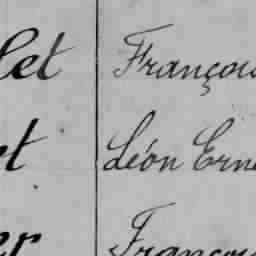 let Françou
et Léon Erne
er Françou